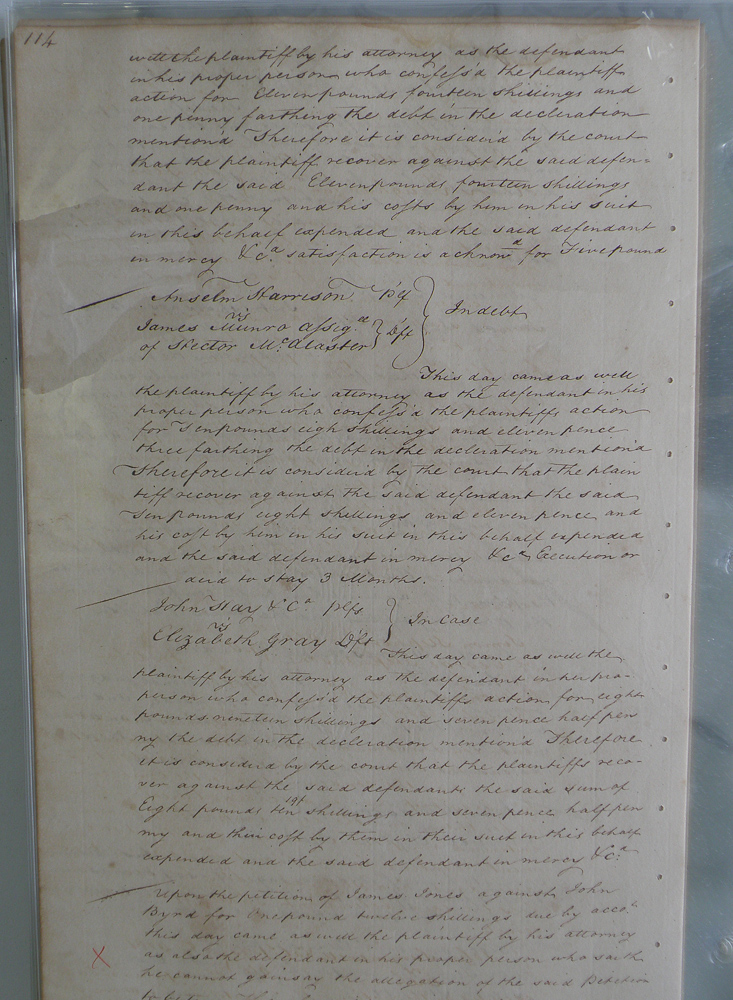 114
with the plaintiff by his attorney as the defendant
in his proper person who confess'd the plaintiffs
action for Eleven pounds fourteen shillings and
one penny farthing the debt in the declaration
mention'd Therefore it is consider'd by the court
that the plaintiff recover against the said defen-
dant the said Eleven pounds fourteen shillings
and one penny and his costs by him in his suit
in this behalf expended and the said defendant
in mercy &c.a satisfaction is acknowd for Five pound
Anselm Harrison Plf
vs
In debt
James Munro assig.ee Dft
of Hector Mc.Alaster
This day came as well
the plaintiff by his attorney as the defendant in his
proper person who confess'd the plaintiffs action
for Ten pounds eigh shillings and eleven pence
three farthing the debt in the declaration mention'd
Therefore it is consider'd by the court that the plain
tiff recover against the said defendant the said
Ten pounds eight shillings and eleven pence and
his cost by him in his suit in this behalf expended
and the said defendant in mercy &ca Execution or
der'd to stay 3 Months.
John Hay & C.a plfs
vs
In Case
Elizabeth Gray Dft
This day came as well the
plaintiff by his attorney as the defendant in her pro-
person who confess'd the plaintiffs action for eight
pounds nineteen shillings and seven pence half pen
ny the debt in the declaration mention'd Therefore
it is consider'd by the court that the plaintiffs reco-
ver against the said defendant the said sum of
Eight pounds ten shillings and seven pence half pen
ny and their cost by them in their suit in this behalf
expended and the said defendant in mercy &c.a
Upon the petition of James Jones against John
Byrd for One pound twelve shillings due by acco.t
this day came as well the plaintiff by his attorney
as also the defendant in his proper person who saith
X
he cannot gainsay the allegation of the said Petition
to be